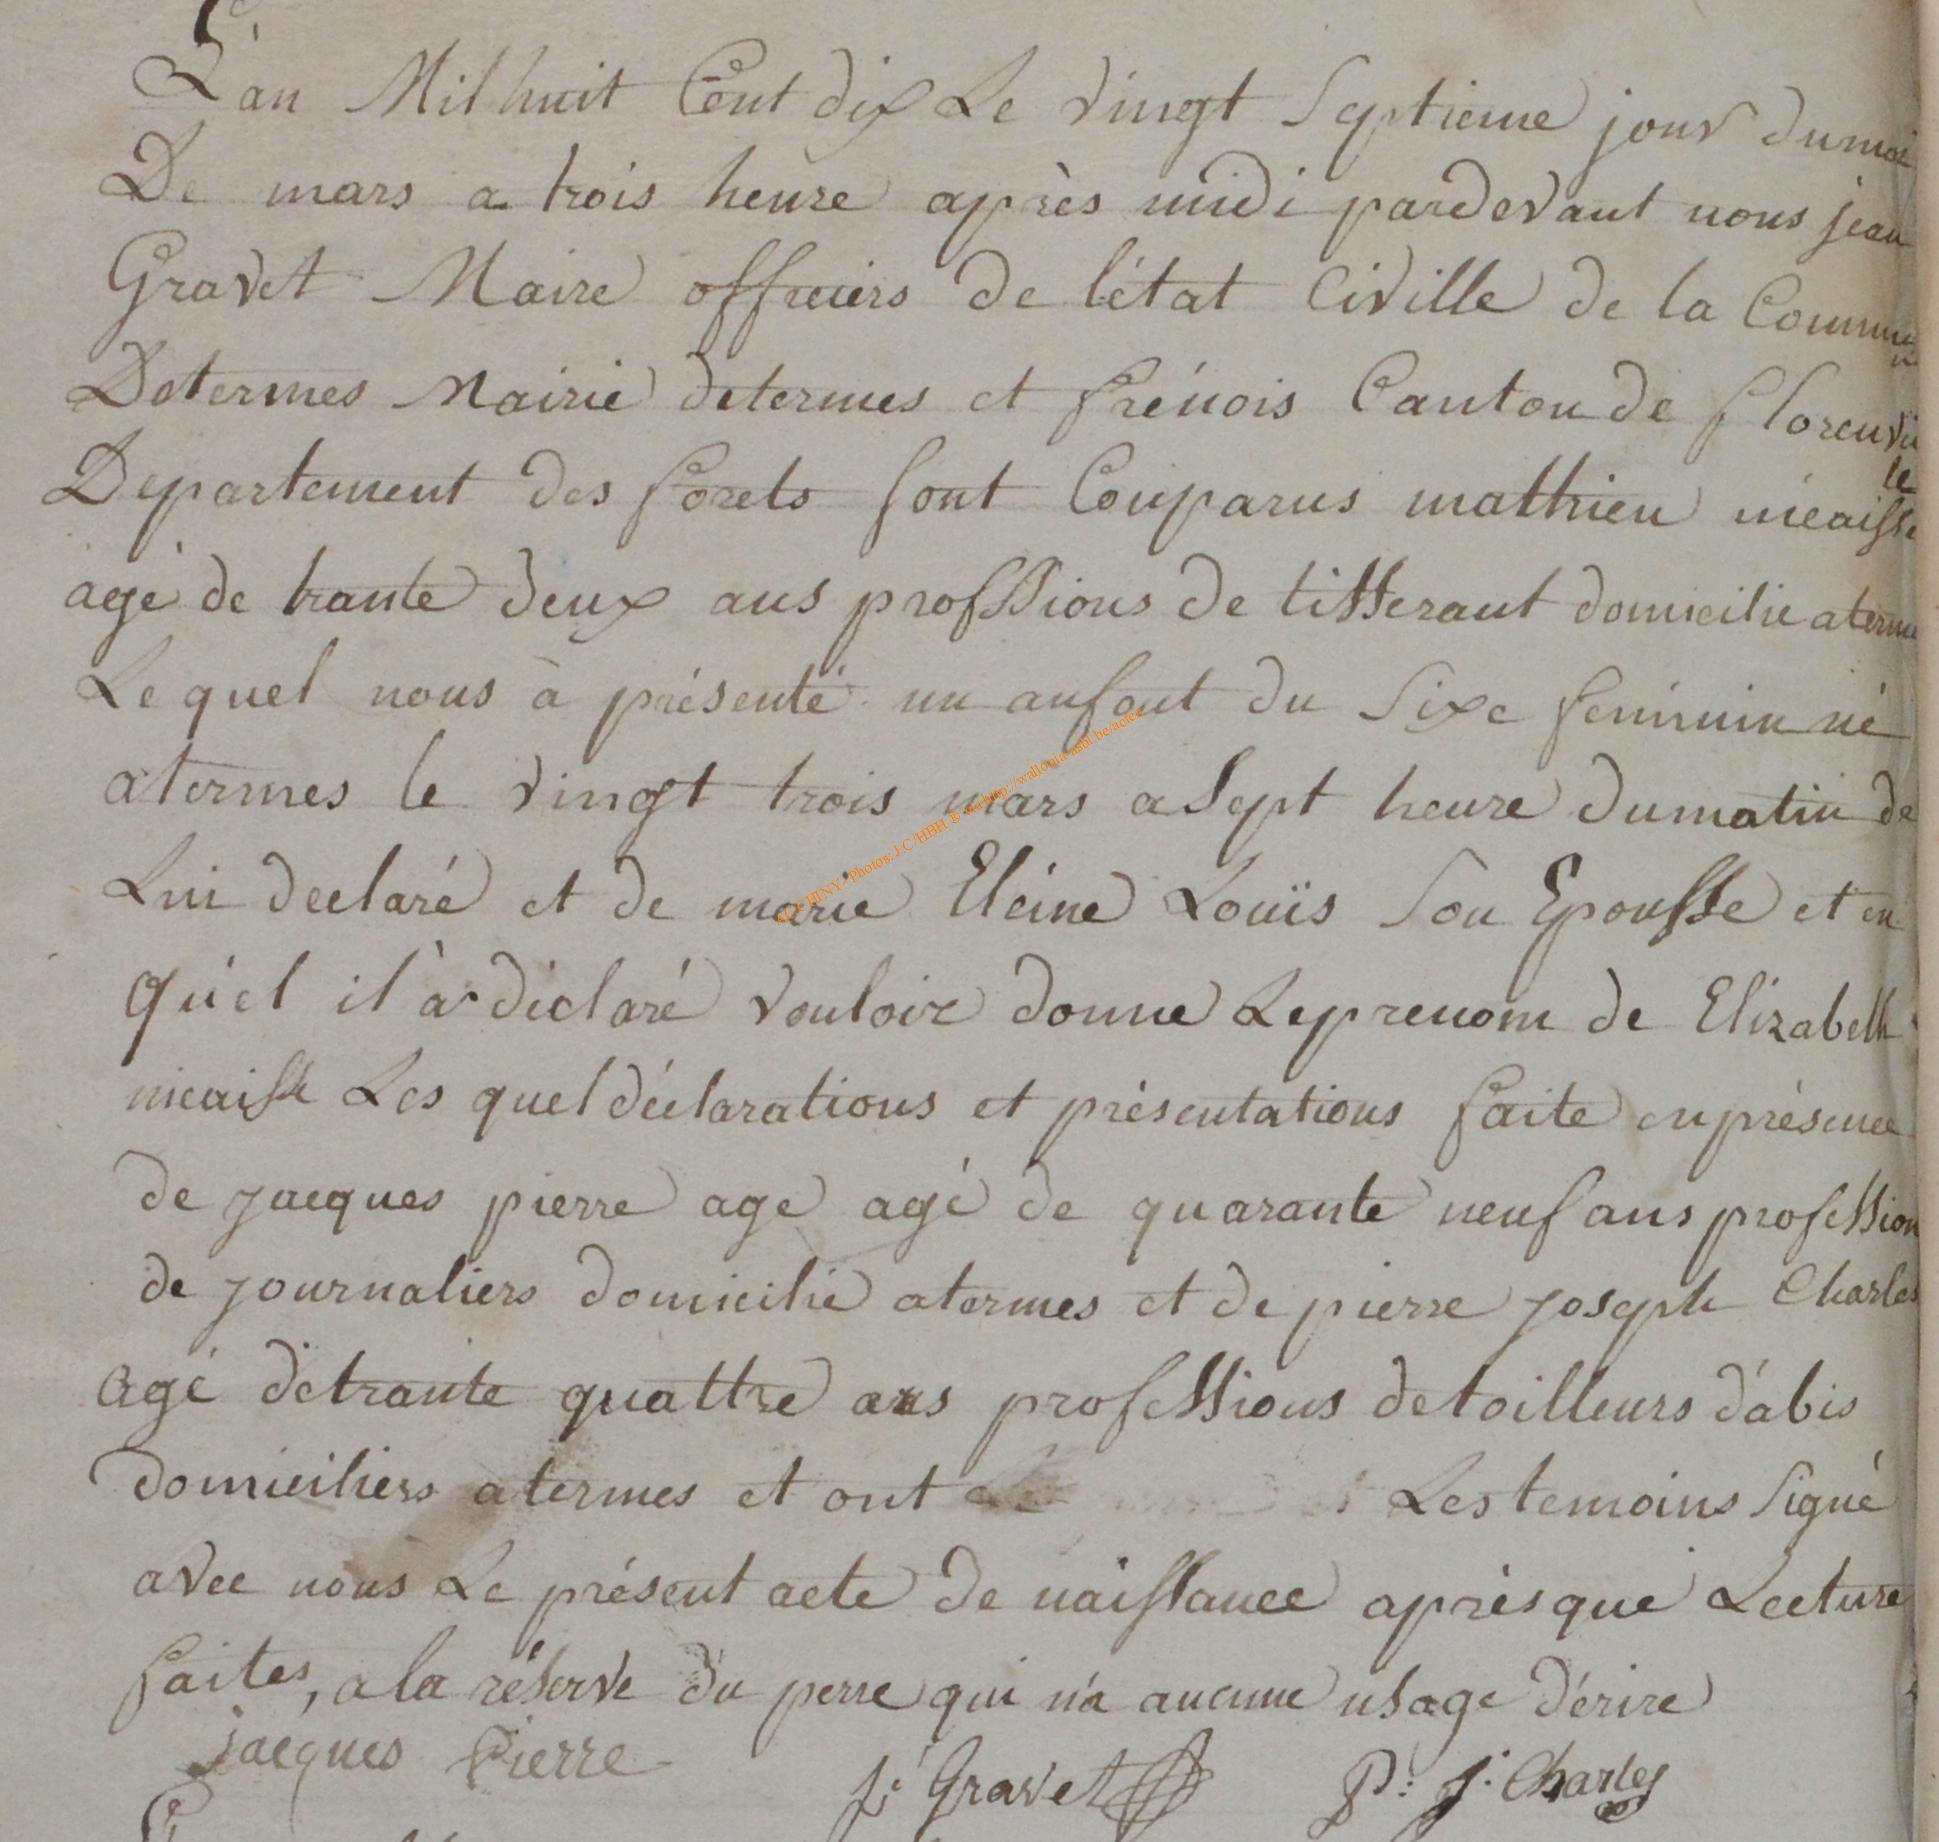 L'an Mil huit Cent dix Le vingt Septieme jour dumois
De mars a trois heure après midi pardevant nous jean
Gravet Maire officiers de l'état Civille de la Commune
Determes Mairie determes et frénois Canton de florenville
Departement des forets sont Comparus mathieu nicaisse
agé de trante deux ans profssions de tisserant domicilié aterme
Le quel nous à présenté un anfant du Sixe feminin né
atermes le vingt trois mars a Sept heure dumatin de
Lui declaré et de marie Eléine Louïs Son Epousse et en
qu'el il à déclaré vouloir donne Leprenom de Elizabeth
nicaisse Les quel déclarations et présentations faite enprésence
de jacques pierre age agé de quarante neuf ans profession
de journaliers domicilié atermes et de pierre joseph Charles
agé detrante quattre ans professions detailleurs d'abis
domiciliers atermes et ont Les temoins Signé
avec nous Le présent acte de naissance après que Lecture
faites, a la réserve du perre qui n'a aucune usage d'érire
jacques Pierre
J: Gravet P: J: Charles
ALUCHINY/Photos:J.C/HBH © http://wallonia-asbl.be/actes